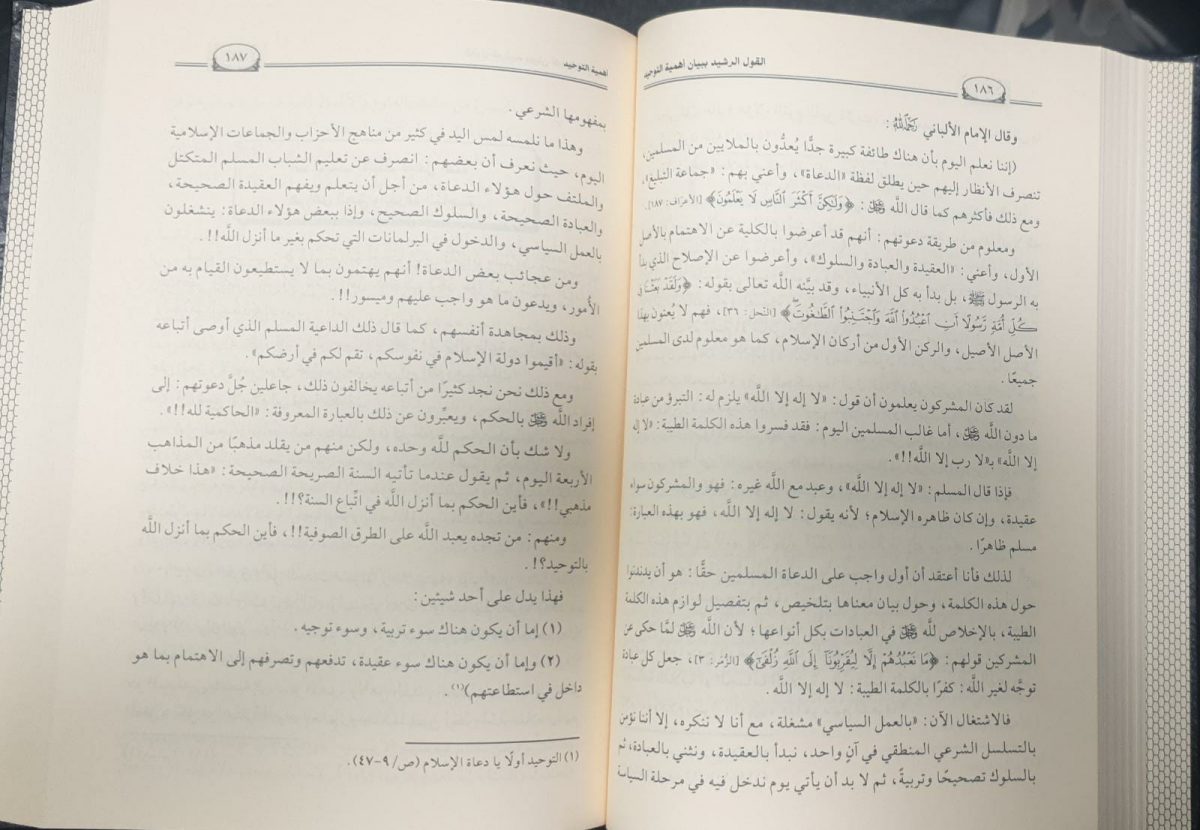 القول الرشيد ببيان أهمية التوحيد
١٨٦
وقال الإمام الألباني رَحِمَهُ اللَّهُ :
(إننا نعلم اليوم بأن هناك طائفة كبيرة جدًّا يُعدُّون بالملايين من المسلمين،
تنصرف الأنظار إليهم حين يطلق لفظة «الدعاة»، وأعني بهم: «جماعة التبليغ»،
ومع ذلك فأكثرهم كما قال اللَّه ﷻ : ﴿وَلَٰكِنَّ أَكْثَرَ ٱلنَّاسِ لَا يَعْلَمُونَ﴾ [الأعراف: ١٨٧].
ومعلوم من طريقة دعوتهم: أنهم قد أعرضوا بالكلية عن الاهتمام بالأصل
الأول، وأعني: «العقيدة والعبادة والسلوك»، وأعرضوا عن الإصلاح الذي بدأ
به الرسول ﷺ، بل بدأ به كل الأنبياء، وقد بيَّنه اللَّه تعالى بقوله: ﴿وَلَقَدْ بَعَثْنَا فِي
كُلِّ أُمَّةٍ رَّسُولًا أَنِ ٱعْبُدُوا۟ ٱللَّهَ وَٱجْتَنِبُوا۟ ٱلطَّٰغُوتَ﴾ [النحل: ٣٦]، فهم لا يُعنون بهذا
الأصل الأصيل، والركن الأول من أركان الإسلام، كما هو معلوم لدى المسلمين
جميعًا.
لقد كان المشركون يعلمون أن قول: «لا إله إلا اللَّه» يلزم له: التبرؤ من عبادة
ما دون اللَّه ﷻ، أما غالب المسلمين اليوم: فقد فسروا هذه الكلمة الطيبة: «لا إله
إلا اللَّه» بـ«لا رب إلا اللَّه!!».
فإذا قال المسلم: «لا إله إلا اللَّه»، وعبد مع اللَّه غيره: فهو والمشركون سواء
عقيدة، وإن كان ظاهره الإسلام؛ لأنه يقول: لا إله إلا اللَّه، فهو بهذه العبارة:
مسلم ظاهرًا.
لذلك فأنا أعتقد أن أول واجب على الدعاة المسلمين حقًّا: هو أن يدندنوا
حول هذه الكلمة، وحول بيان معناها بتلخيص، ثم بتفصيل لوازم هذه الكلمة
الطيبة، بالإخلاص للَّه ﷻ في العبادات بكل أنواعها؛ لأن اللَّه ﷻ لمَّا حكى عن
المشركين قولهم: ﴿مَا نَعْبُدُهُمْ إِلَّا لِيُقَرِّبُونَآ إِلَى ٱللَّهِ زُلْفَىٰٓ﴾ [الزُّمَر: ٣]، جعل كل عبادة
توجَّه لغير اللَّه: كفرًا بالكلمة الطيبة: لا إله إلا اللَّه.
فالاشتغال الآن: «بالعمل السياسي» مشغلة، مع أنا لا ننكره، إلا أننا نؤمن
بالتسلسل الشرعي المنطقي في آنٍ واحد، نبدأ بالعقيدة، ونثني بالعبادة، ثم
بالسلوك تصحيحًا وتربيةً، ثم لا بد أن يأتي يوم ندخل فيه في مرحلة السياسة
أهمية التوحيد
١٨٧
بمفهومها الشرعي.
وهذا ما نلمسه لمس اليد في كثير من مناهج الأحزاب والجماعات الإسلامية
اليوم، حيث نعرف أن بعضهم: انصرف عن تعليم الشباب المسلم المتكتل
والملتف حول هؤلاء الدعاة، من أجل أن يتعلم ويفهم العقيدة الصحيحة،
والعبادة الصحيحة، والسلوك الصحيح، وإذا ببعض هؤلاء الدعاة: ينشغلون
بالعمل السياسي، والدخول في البرلمانات التي تحكم بغير ما أنزل اللَّه!!.
ومن عجائب بعض الدعاة! أنهم يهتمون بما لا يستطيعون القيام به من
الأُمور، ويدعون ما هو واجب عليهم وميسور!!.
وذلك بمجاهدة أنفسهم، كما قال ذلك الداعية المسلم الذي أوصى أتباعه
بقوله: «أقيموا دولة الإسلام في نفوسكم، تقم لكم في أرضكم».
ومع ذلك نحن نجد كثيرًا من أتباعه يخالفون ذلك، جاعلين جُلَّ دعوتهم: إلى
إفراد اللَّه ﷻ بالحكم، ويعبِّرون عن ذلك بالعبارة المعروفة: «الحاكمية لله!!».
ولا شك بأن الحكم للَّه وحده، ولكن منهم من يقلد مذهبًا من المذاهب
الأربعة اليوم، ثم يقول عندما تأتيه السنة الصريحة الصحيحة: «هذا خلاف
مذهبي!!»، فأين الحكم بما أنزل اللَّه في اتِّباع السنة؟!!.
ومنهم: من تجده يعبد اللَّه على الطرق الصوفية!!، فأين الحكم بما أنزل اللَّه
بالتوحيد؟!.
فهذا يدل على أحد شيئين:
(١) إما أن يكون هناك سوء تربية، وسوء توجيه.
(٢) وإما أن يكون هناك سوء عقيدة، تدفعهم وتصرفهم إلى الاهتمام بما هو
داخل في استطاعتهم)(١).
(١) التوحيد أولًا يا دعاة الإسلام (ص/ ٩-٤٧).